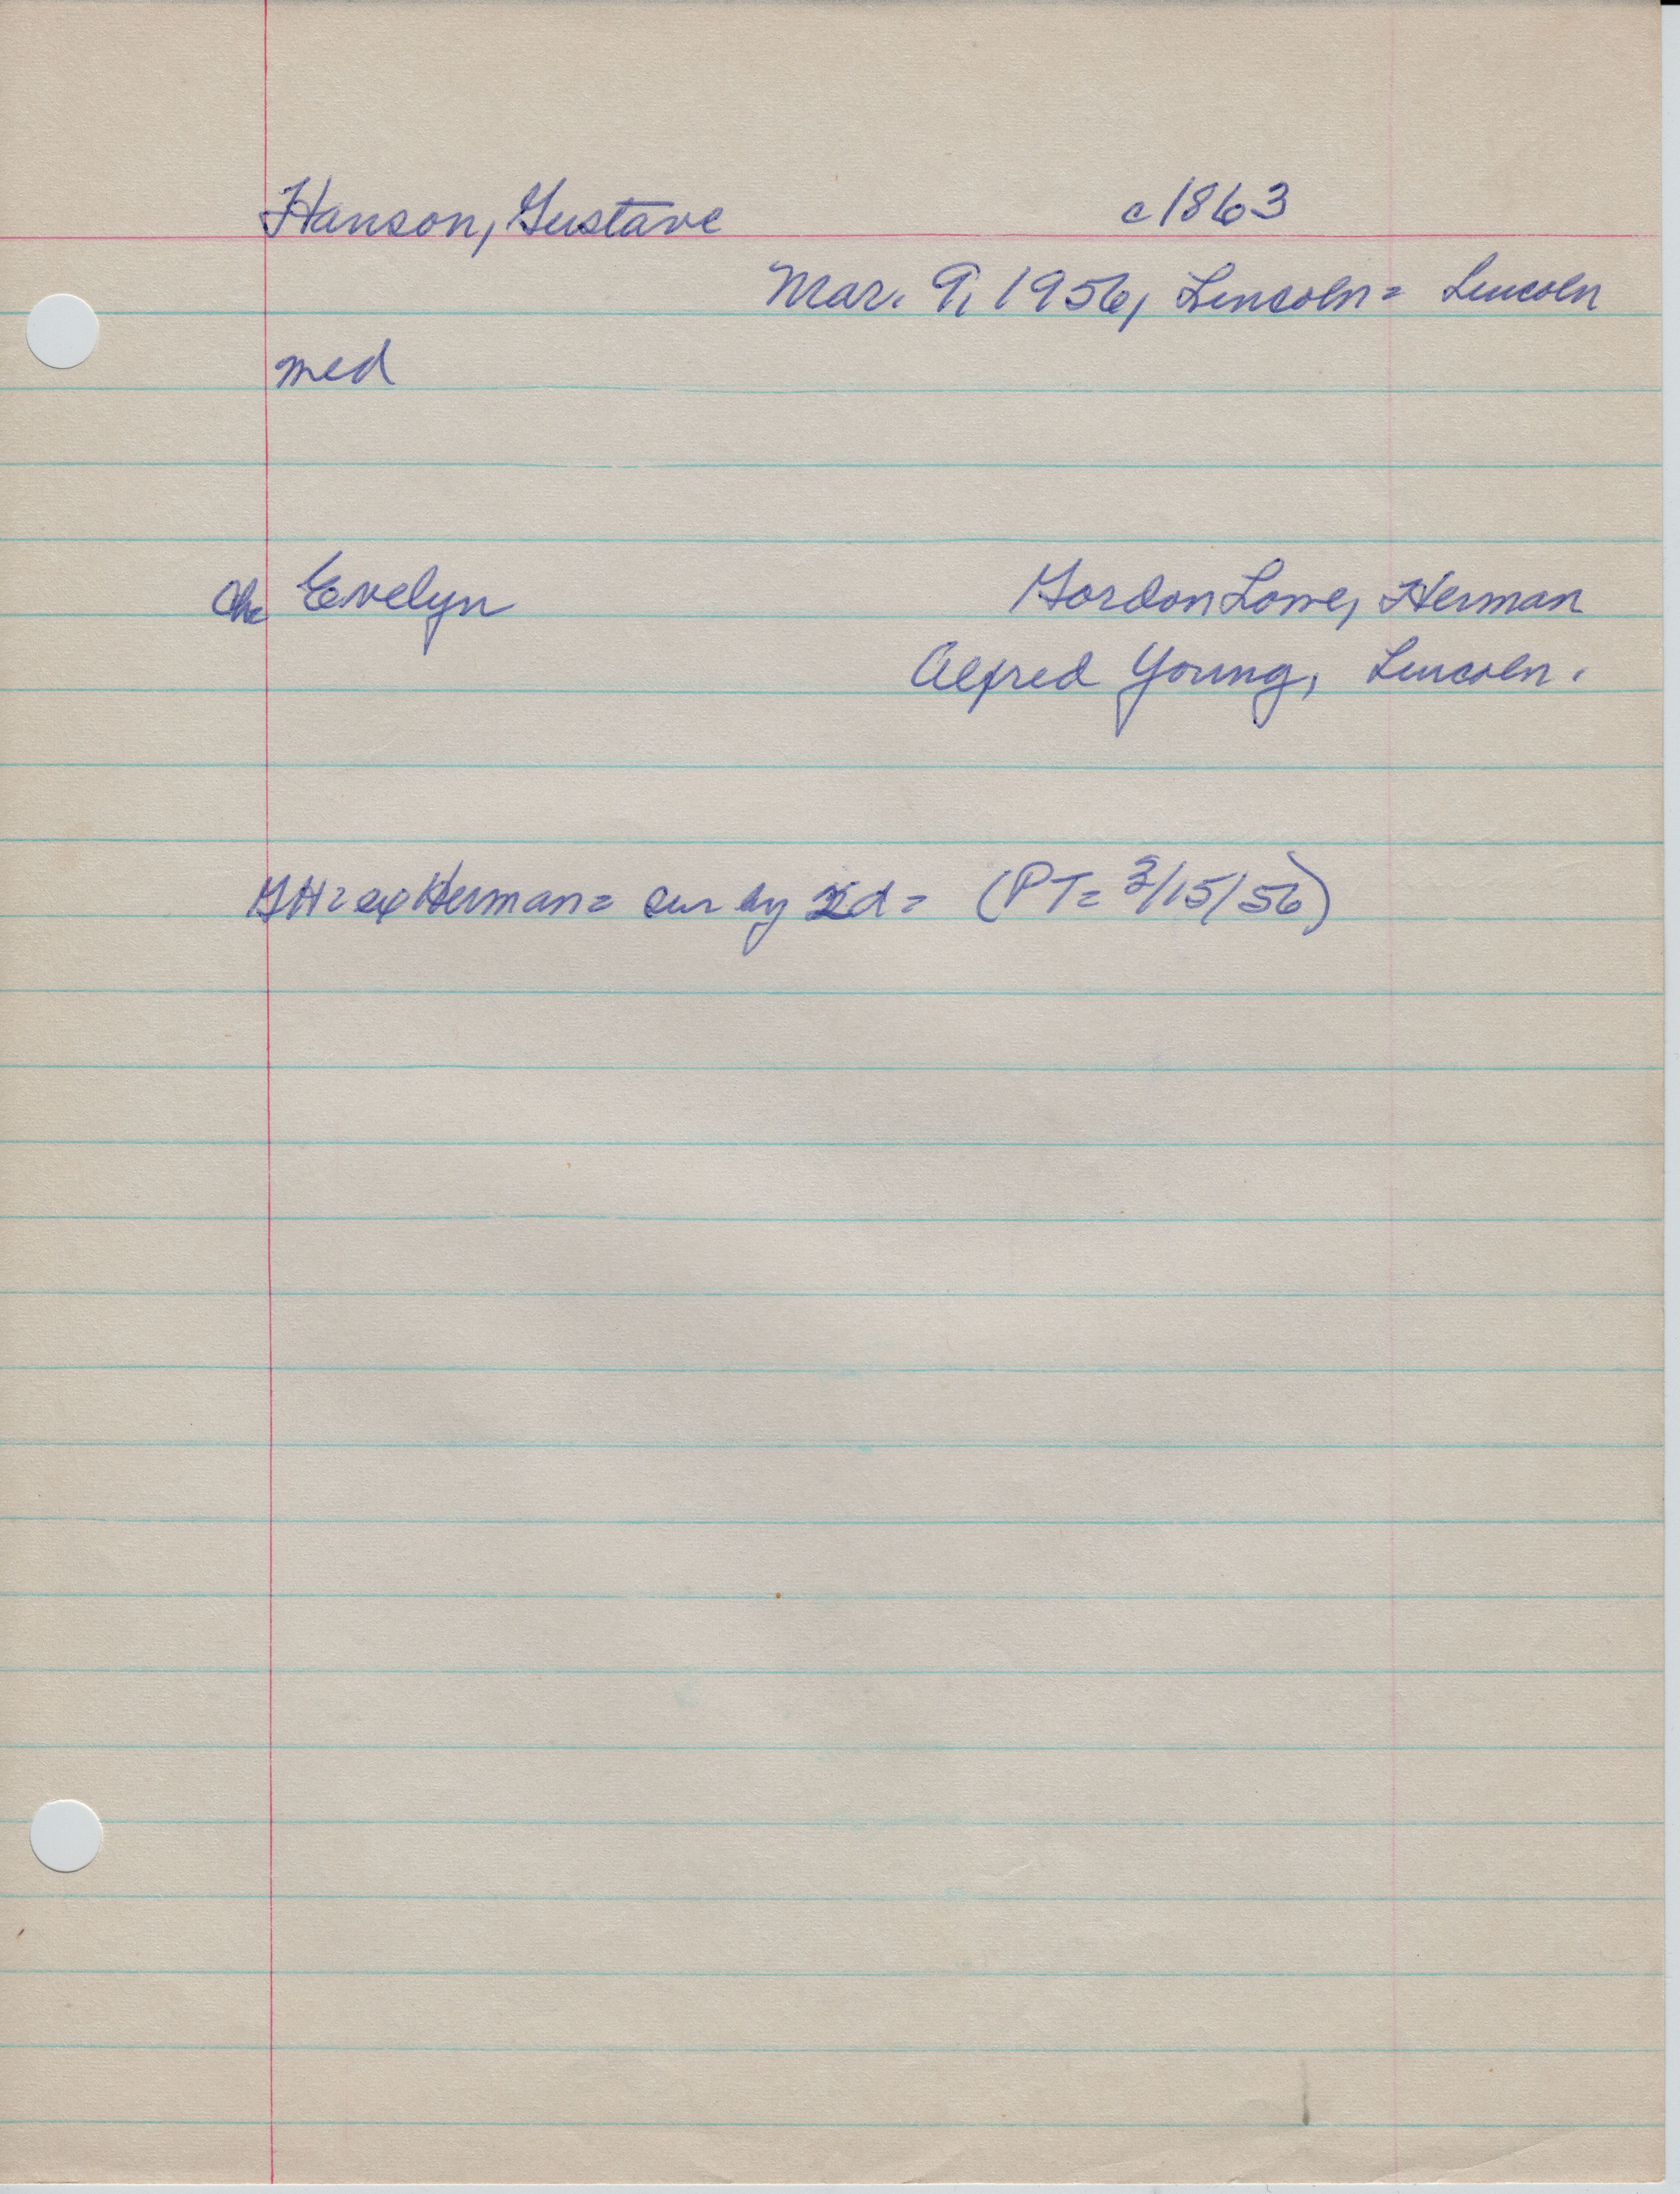 Hanson, Gustave c1863
Mar. 9, 1956, Lincoln = Lincoln
med
Ch Evelyn Gordon Lowe, Herman
Alfred Young, Lincoln.
GH = ex Herman = sur by 2d = (PT = 3/15/56)